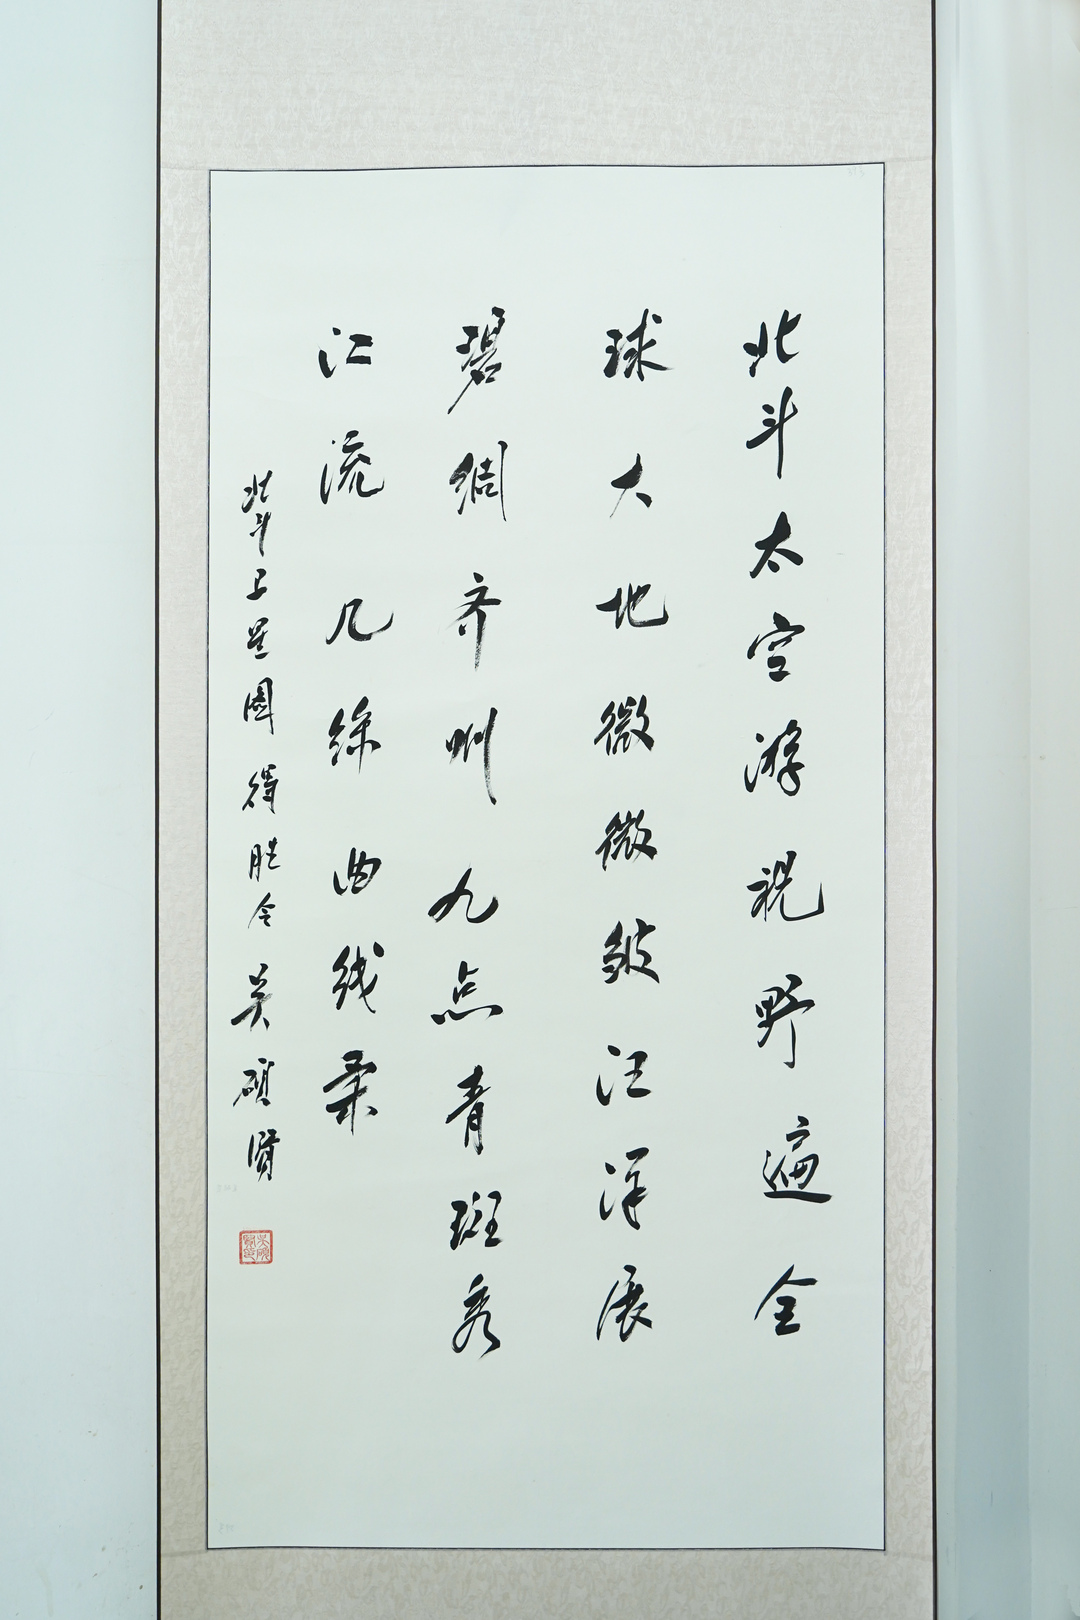 北斗太空游视野遍全
球大地微微皱汪洋展
碧绸齐州九点青斑秀
江流几条曲线柔
北斗卫星图 得胜令 吴硕贤